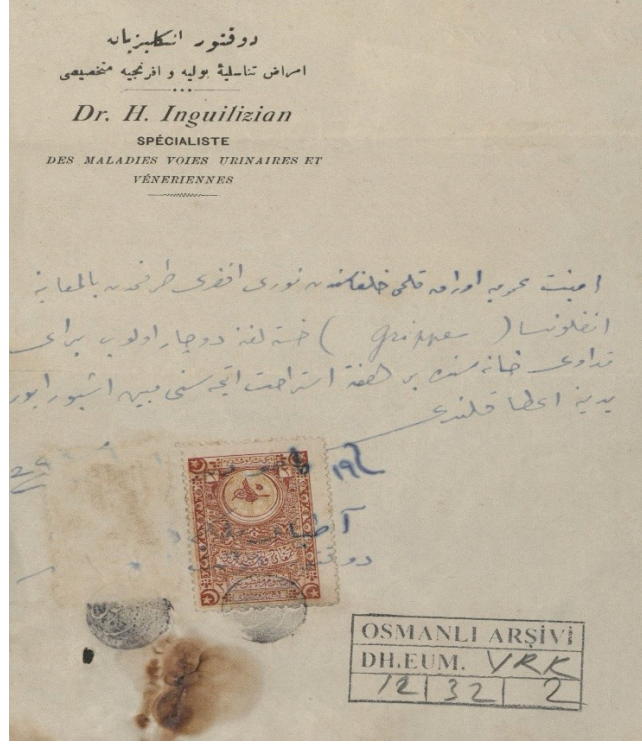 دوقتور انكليزيان
امراض تناسلية بوليه و افرنجيه متخصصى
Dr. H. Inguilizian
SPÉCIALISTE
DES MALADIES VOIES URINAIRES ET
VÉNERIENNES
امنيت عموميه اوراق قلمى خلفاسندن نورى افندى طرفمدن بالمعاينه
انفلونسا ( grippe ) خسته لغنه دوچار اولوب براى
تداوى خانه سنده بر هفته استراحت ايتمه سنى مبين اشبو راپور
يدينه اعطا قلندى
OSMANLI ARŞİVİ
DH.EUM. VRK
12 32 2